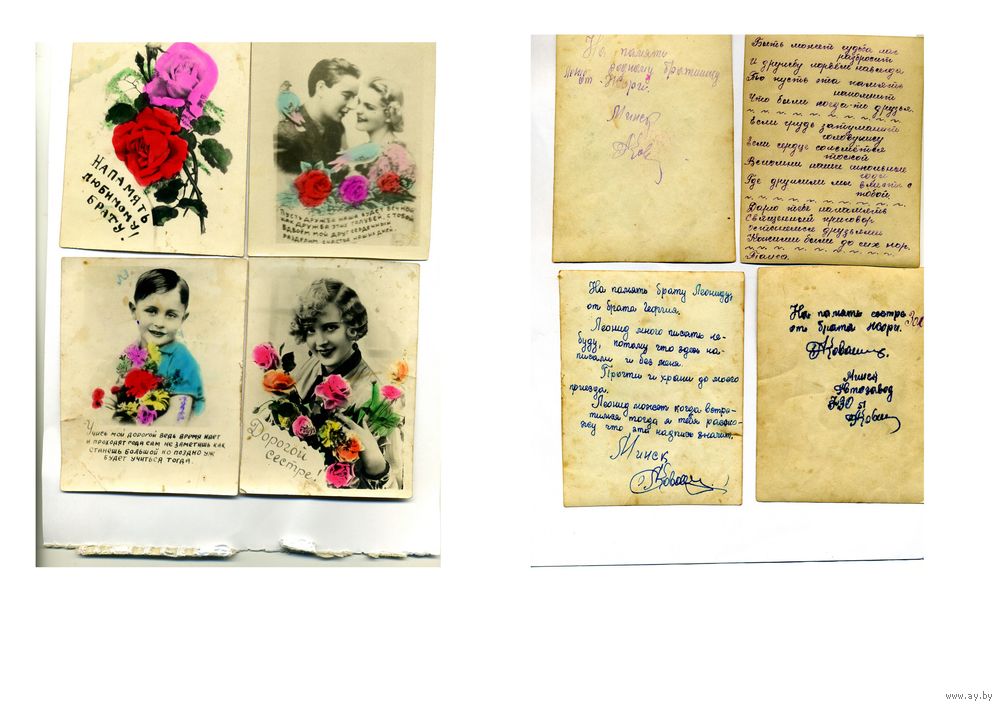 НА ПАМЯТЬ
ЛЮБИМОМУ
БРАТУ!
ПУСТЬ ДРУЖБА НАША БУДЕТ ВЕЧНОЙ
КАК ДРУЖБА ЭТИХ ГОЛУБЕЙ, С ТОБОЙ
ВДВОЕМ МОЙ ДРУГ СЕРДЕЧНЫЙ
РАЗДЕЛИМ СЧАСТЬЕ НАШИХ ДНЕЙ.
УЧИСЬ МОЙ ДОРОГОЙ ВЕДЬ ВРЕМЯ ИДЕТ
И ПРОХОДЯТ ГОДА САМ НЕ ЗАМЕТИШЬ КАК
СТАНЕШЬ БОЛЬШОЙ НО ПОЗДНО УЖ
БУДЕТ УЧИТЬСЯ ТОГДА.
Дорогой
сестре!
На память
родному братишку
от
Минск
Быть может судьба нас
разбросит
И дружбу порвём навсегда
Но пусть эта память
напомнит
Что были когда-то друзья.
Если грудь затуманит
Если сердце
тоской
Вспомни наши школьные
годы
Где дружили мы вместе с
тобой.
Дарю тебе на память
Священный приговор
Останемся друзьями
Какими были до сих пор.
На память брату Леониду,
от брата Георгия.
Леонид много писать не-
буду, потому что здесь на-
писали и без меня.
Прочти и храни до моего
приезда.
Леонид может когда встре-
тимся тогда я тебе расска-
жу что эта надпись значит.
Минск
На память сестре
от брата
Минск
Автозавод
www.ay.by